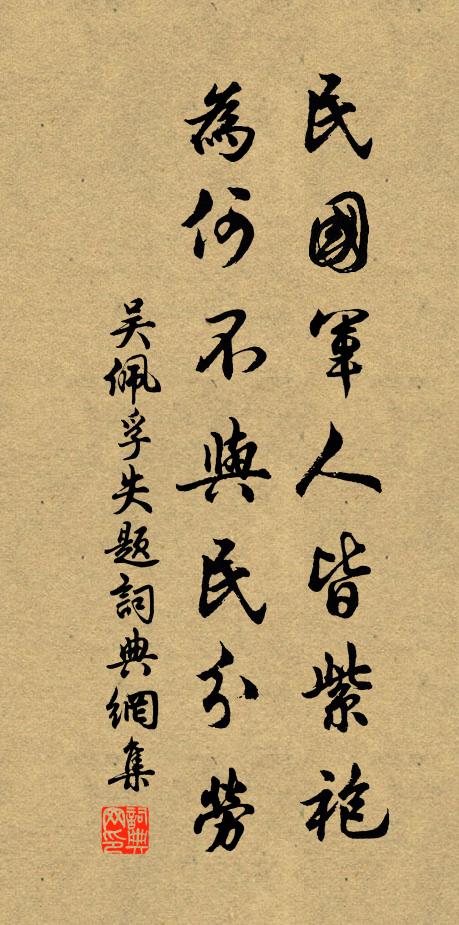 民國軍人皆紫袍
為何不與民分勞
吴佩孚失题詞典網集
詞典網印